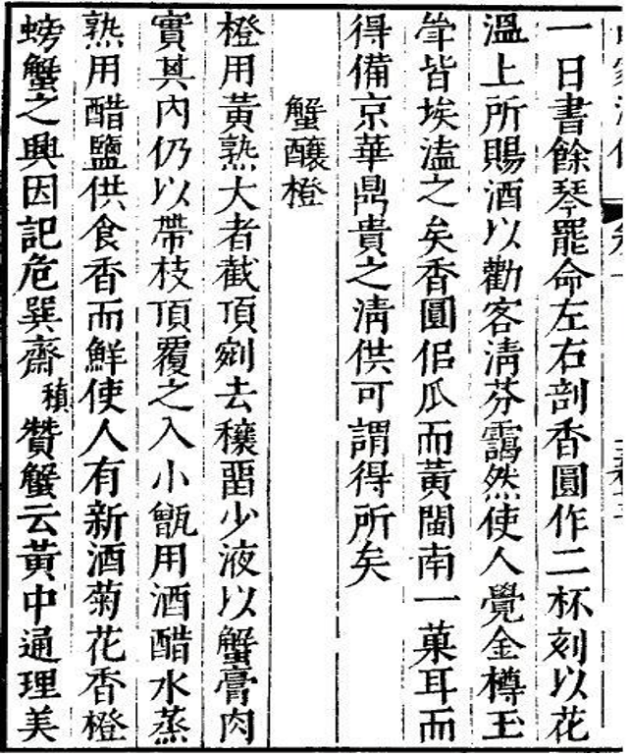 一日書餘琴罷命左右剖香圓作二杯刻以花
溫上所賜酒以勸客淸芬靄然使人覺金樽玉
斝皆埃溘之矣香圓佀瓜而黃閩南一菓耳而
得備京華鼎貴之淸供可謂得所矣
蟹釀橙
橙用黃熟大者截頂剜去穰畱少液以蟹膏肉
實其內仍以帶枝頂覆之入小甑用酒醋水蒸
熟用醋鹽供食香而鮮使人有新酒菊花香橙
螃蟹之興因記危巽齋稹贊蟹云黃中通理美